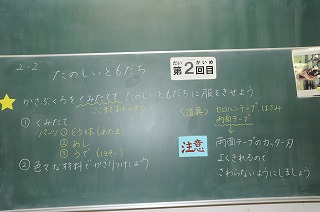 2-2
たのしいともだち
だい かいめ
第2回目
かさぶくろをくみたてて たのしいともだちに服をきせよう
① くみたて
パーツ① どう体(あたま)
② あし
③ うで
② 色々な材料でかざりつけしよう
〈道具〉 セロハンテープ はさみ
両面テープ
ちゅうい
注意
両面テープのカッター刃
よくきれるので
さわらないようにしましょう